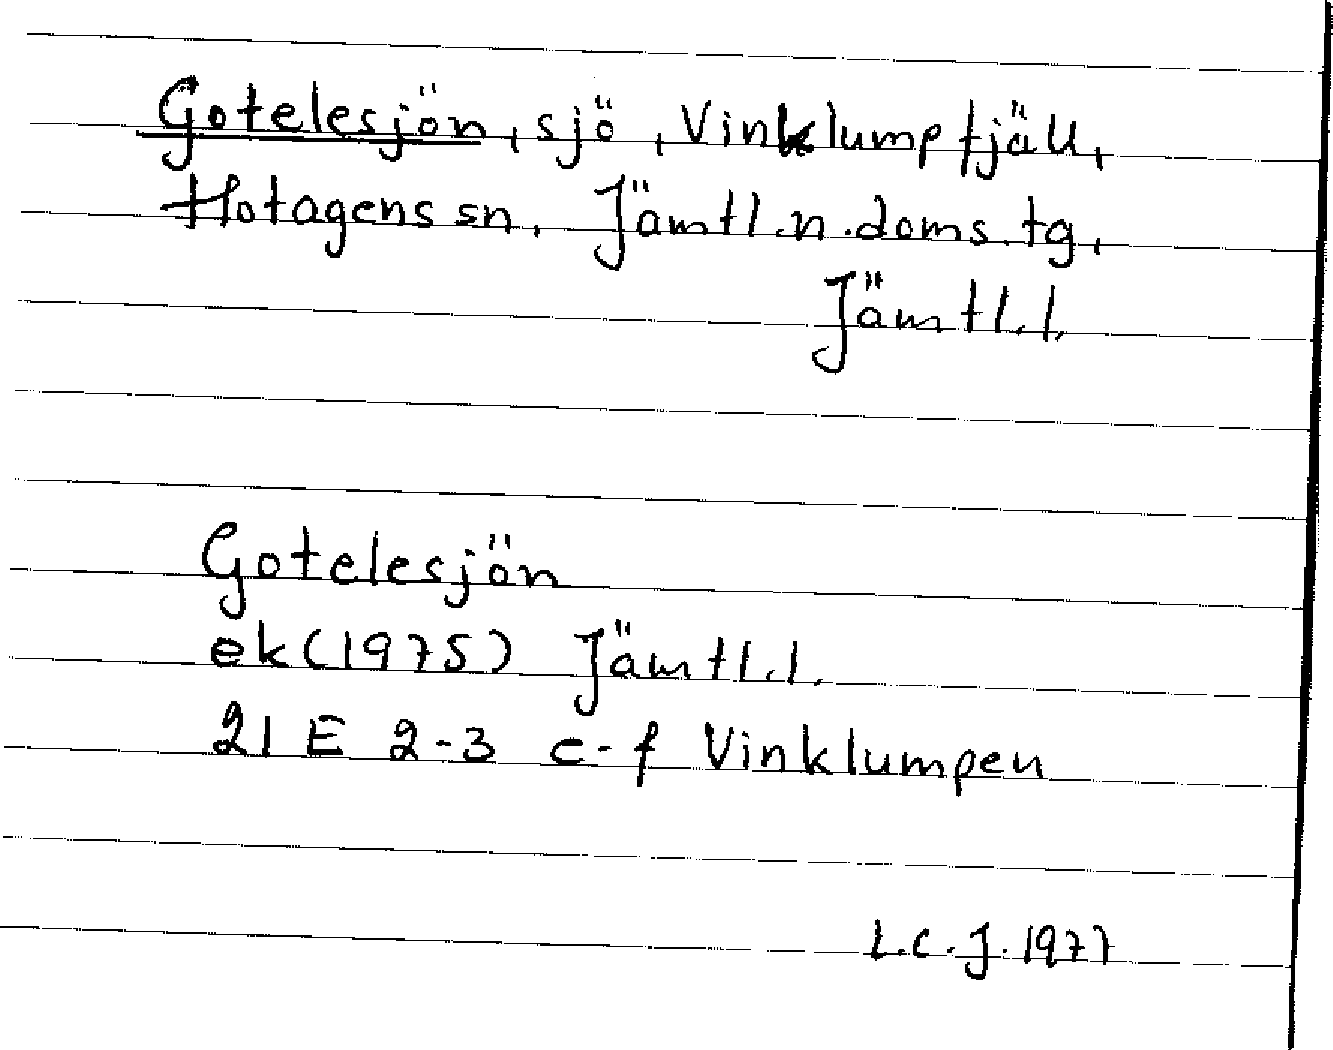 Gotelesjön, sjö, Vinklumpfjäll,
Hotagens sn, Jämtl.n.doms.tg,
Jämtl.l.
Gotelesjön
ek (1975) Jämtl.l.
21 E 2-3 c-f Vinklumpen
L.C.J. 1977